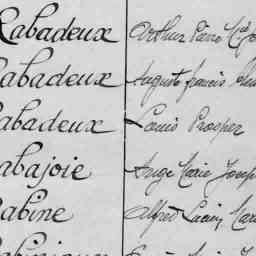 Rabadeux Arthur Pierre
abadeux Auguste francis
abadeux Louis Prosper
abajoie Ange Marie Joseph
abine Alfred Lucien Marie